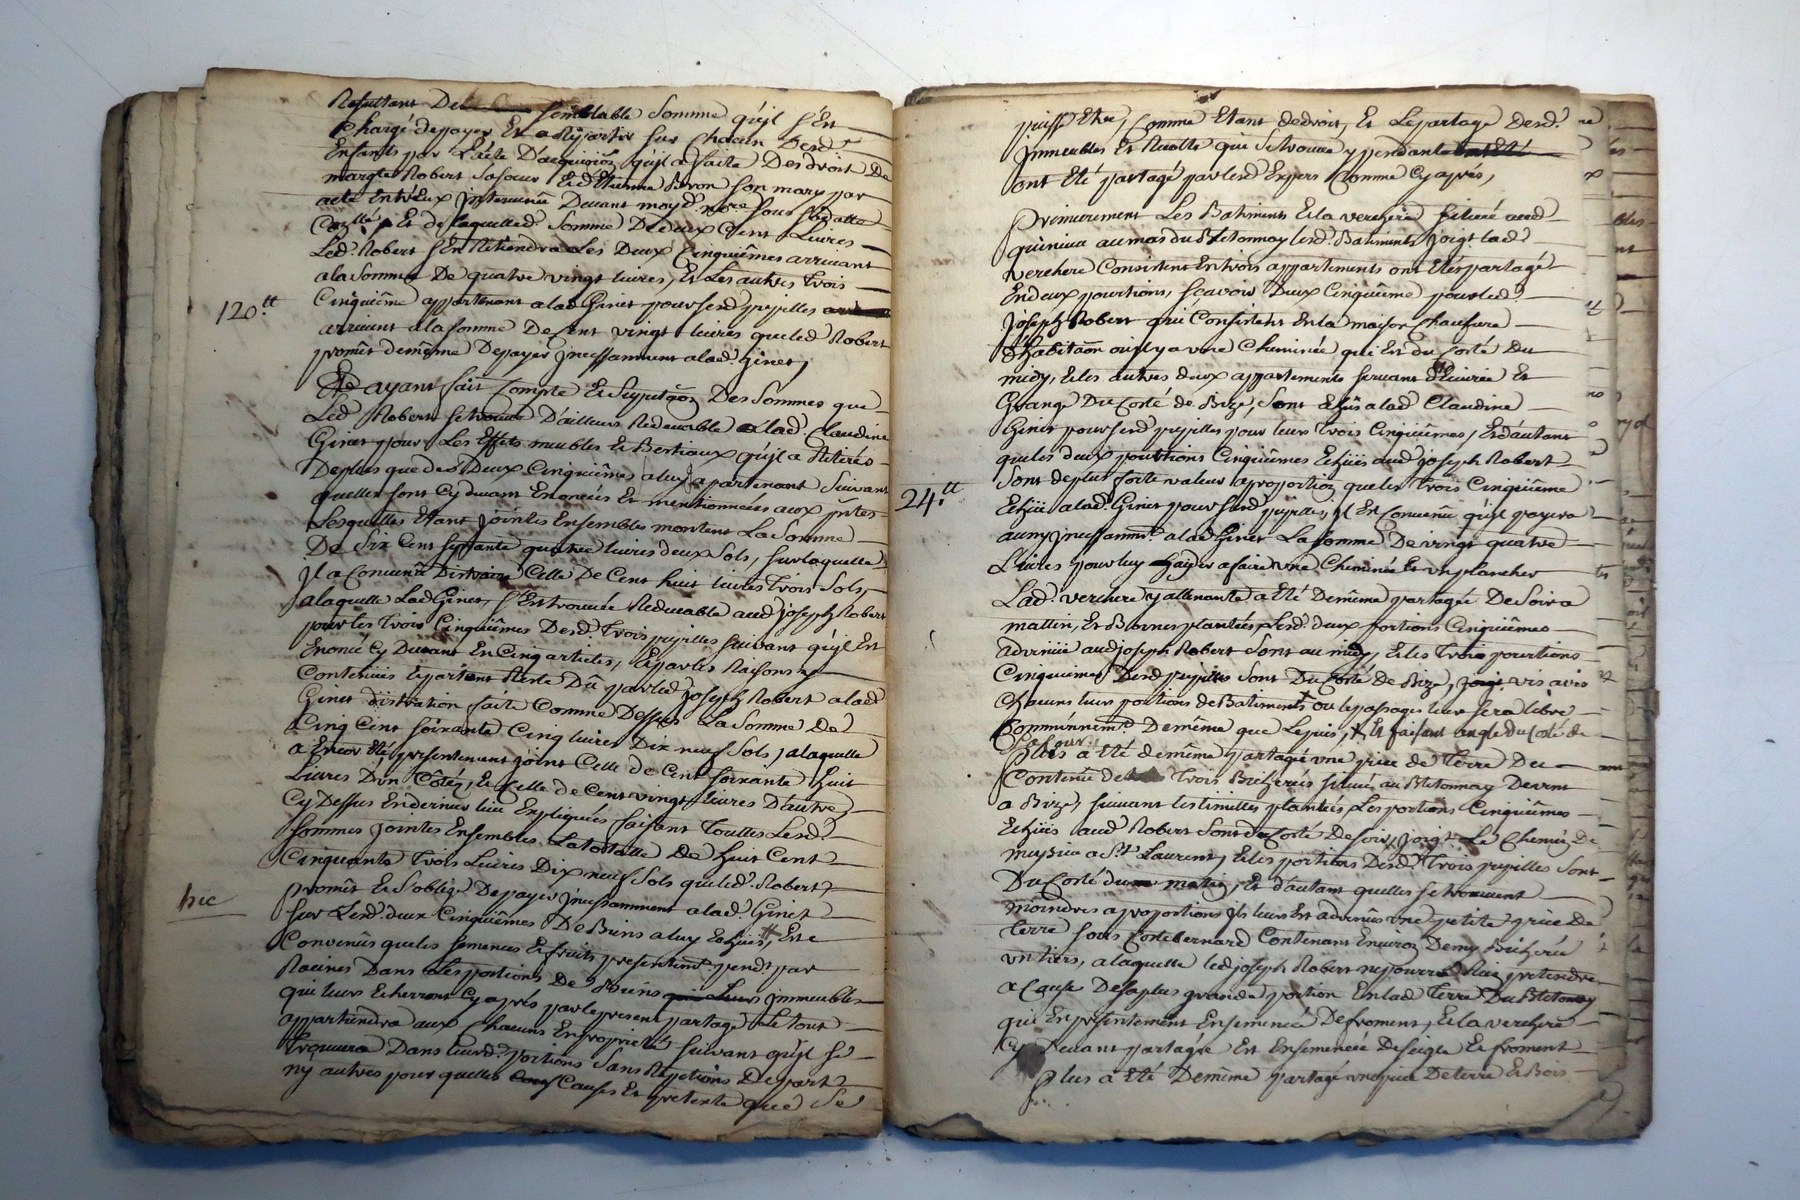 Resultant De semblable Somme qu'jl s'Est
Chargé depayer Et a Repartir sur Chacun Desd.
Enfants par L'acte D'acquision qu'jl a faite Des droits De
margte Robert sa soeur Et d'Etienne son mary par
acte Entr'Eux jntervenüe Devant moyd. nore sous sa datte
Et de laquelled. Somme De deux Cent Livres
Led. Robert s'En Retiendra Les Deux Cinquiêmes arrivant
ala Somme De quatre vingt livres, Et Les autres Trois
Cinquiême appartenant alad Ginet pour sesd pupilles
120.tt
arrivent ala somme De Cent vingt livres que led Robert
promêt demême Depayer jncessamment alad. Ginet,
Et ayant fait Compte Et Supputaon Des Sommes que
Led Robert se trouve D'ailleurs Redevable alad. Claudine
Ginet pour Les Effets meubles Et Bestiaux qu'jl a Retirés
Deplus que des Deux Cinquiêmes aluy apartenant Suivant
quelles sont Cy devant Enoncées Et mentionnées aux pntes
Lesquelles Etant jointes Ensembles montent La Somme
De Six Cent septante quatre livres deux Sols, sur laquelle
jl a Convenû Distraire Celle De Cent huit livres Trois Sols,
alaquelle Lad Ginet, s'Est trouvée Redevable aud joseph Robert
pour les Trois Cinquiêmes Desd. Trois pupilles suivant qu'jl Est
Enoncé Cy Devant En Cinq articles, Et par les Raisons y
Contenües Et partant Reste Dû par led joseph Robert alad
Ginet distration faite Comme Dessus La Somme De
Cinq Cent soixante Cinq livres Dix neuf Sols, alaquelle
a Encor Eté presentement joint Celle de Cent soixante huit
Livres D'un Côtés, Et Celle de Cent vingt livres D'autre
Cy Dessus En dernier lieu Expliquées faisant Touttes Lesd.
Sommes jointes Ensembles La totalle De huit Cent
Cinquante Trois Livres Dix neuf Sols que led. Robert
hic
promêt Et S'oblige De payer jncessamment alad. Ginet
sur Lesd. deux Cinquiêmes De Biens a luy Echûës, Et
Convenûs que les semences Et fruits presentemt. pendt par
Racines Dans Les portions De Biens jmmeubles
qui leurs Echerront Cy aprés par le present partage Le tout
appartiendra aux Chacuns En propriété suivant qu'jl se
Trouvera Dans leursd. portions Sans Repetitions De part
ny autres pour quelles Causes Et pretexte que Ce
puisse Etre, Comme Etant de droit, Et Le partage Desd.
jmmeubles Et Recolte qui Se trouve y pendante
ont Eté partagé par lesd Expers Comme Cy aprés,
Primierement Les Batiments Et la verchere situés aud
au mas du Bletonnay lesd. Batiments joigt lad
verchere Consistent En trois appartements ont Etés partagé
En deux pourtions, scavoir Deux Cinquiême pour led.
joseph Robert qui Consistent En la maison
D'habitaon ou jl y a une Cheminée qui Est du Costé Du
midy, Et les autres deux appartements servant D'Ecuirie Et
Grange Du Costé de Bize, Sont Echûs alad Claudine
Ginet pour sesd pupilles pour leurs Trois Cinquiêmes, Et d'autant
que les deux pourtions Cinquiêmes Echües aud joseph Robert
24.tt
Sont deplus forte valeur aproportion que les Trois Cinquiême
Echûs alad. Ginet pour sesd pupilles, jl Est Convenû qu'jl payera
jncessammt. alad Ginet La somme De vingt quatre
Livres pour luy haider afaire une Cheminée Et un plancher
Lad. verchere y attenante a Eté Demême partagée De Soir a
mattin, Et Bornes plantées, Lesd. deux portions Cinquiêmes
advenües aud joseph Robert Sont au midy, Et les Trois pourtions
Cinquiemes Desd pupilles Sont Du Costé De Bize, vis avis
Chacuns leurs portions de Batiments + ou le passage leur sera libre
Communément. Demême que Le puis, + Et faisant angle du Costé de
Plus a Eté de même partagée une piece de Terre Du
Contenüe de Trois Bicherées située au Bletonnay De vent
a Bize, suivant les limittes plantées, Les portions Cinquiêmes
Echûës aud Robert Sont du Costé De soir, joigt. Le Chemin De
a St. Laurent, Et les portions Desd. Trois pupilles Sont
Du Costé du matin, Et d'autant quelles se trouvent
moindres a proportions jl leurs Est advenûe une petite piece De
Terre sous Contenant Environ Demy Bicherée
un tiers, alaquelle led joseph Robert ne pourra Rien pretendre
a Cause De sa plus grande portion En lad Terre Du Bletonnay
qui Est presentement Ensemencée De froment, Et la verchere
Cy Devant partagée Est Ensemencée De seigle Et froment
Plus a Eté Demême partagé une piece De terre Et Bois